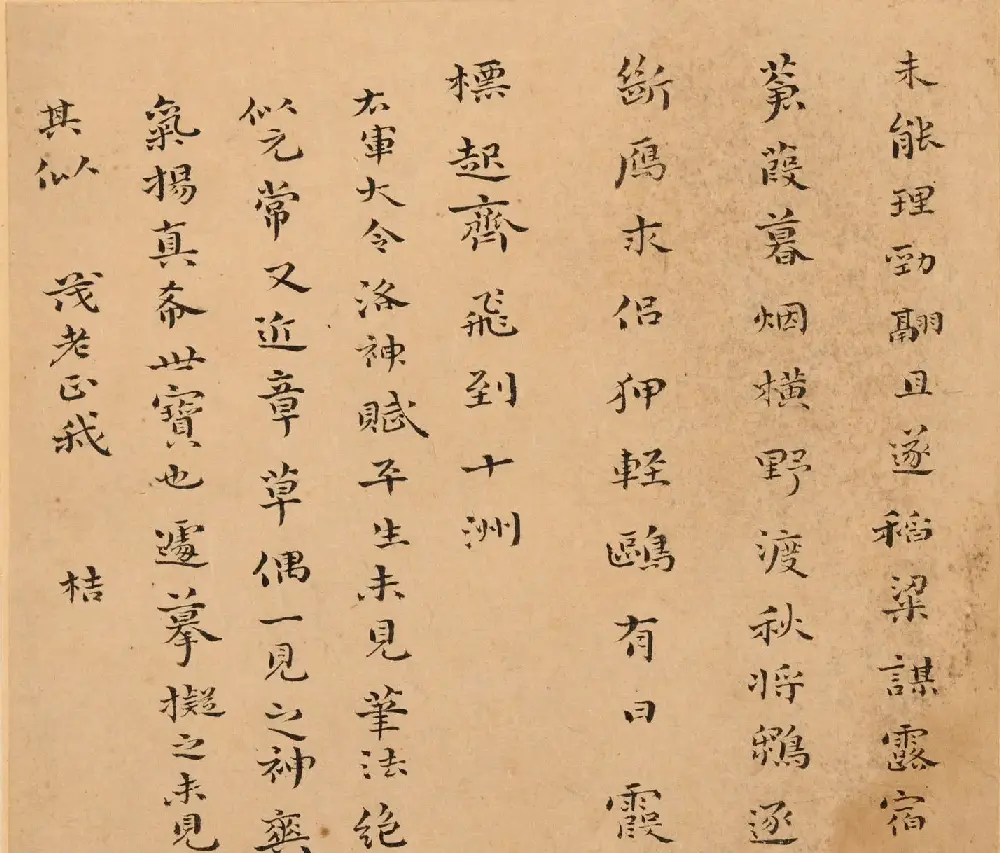 未能理勁翮且遂稻粱謀露宿
蒹葭暮烟橫野渡秋將鴉逐
斷鴈求侣狎軽鷗有日霞
標起齊飛到十洲
右軍大令洛神賦平生未見筆法絶
似元常又近章草偶一見之神爽
氣揚真希世寶也遽摹擬之未見
其似 茂老正我 桔